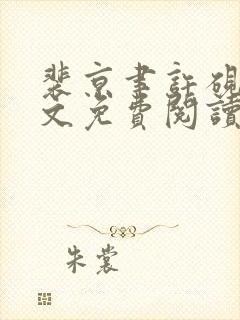 裴京聿許硯
文免費閱讀
朱裳